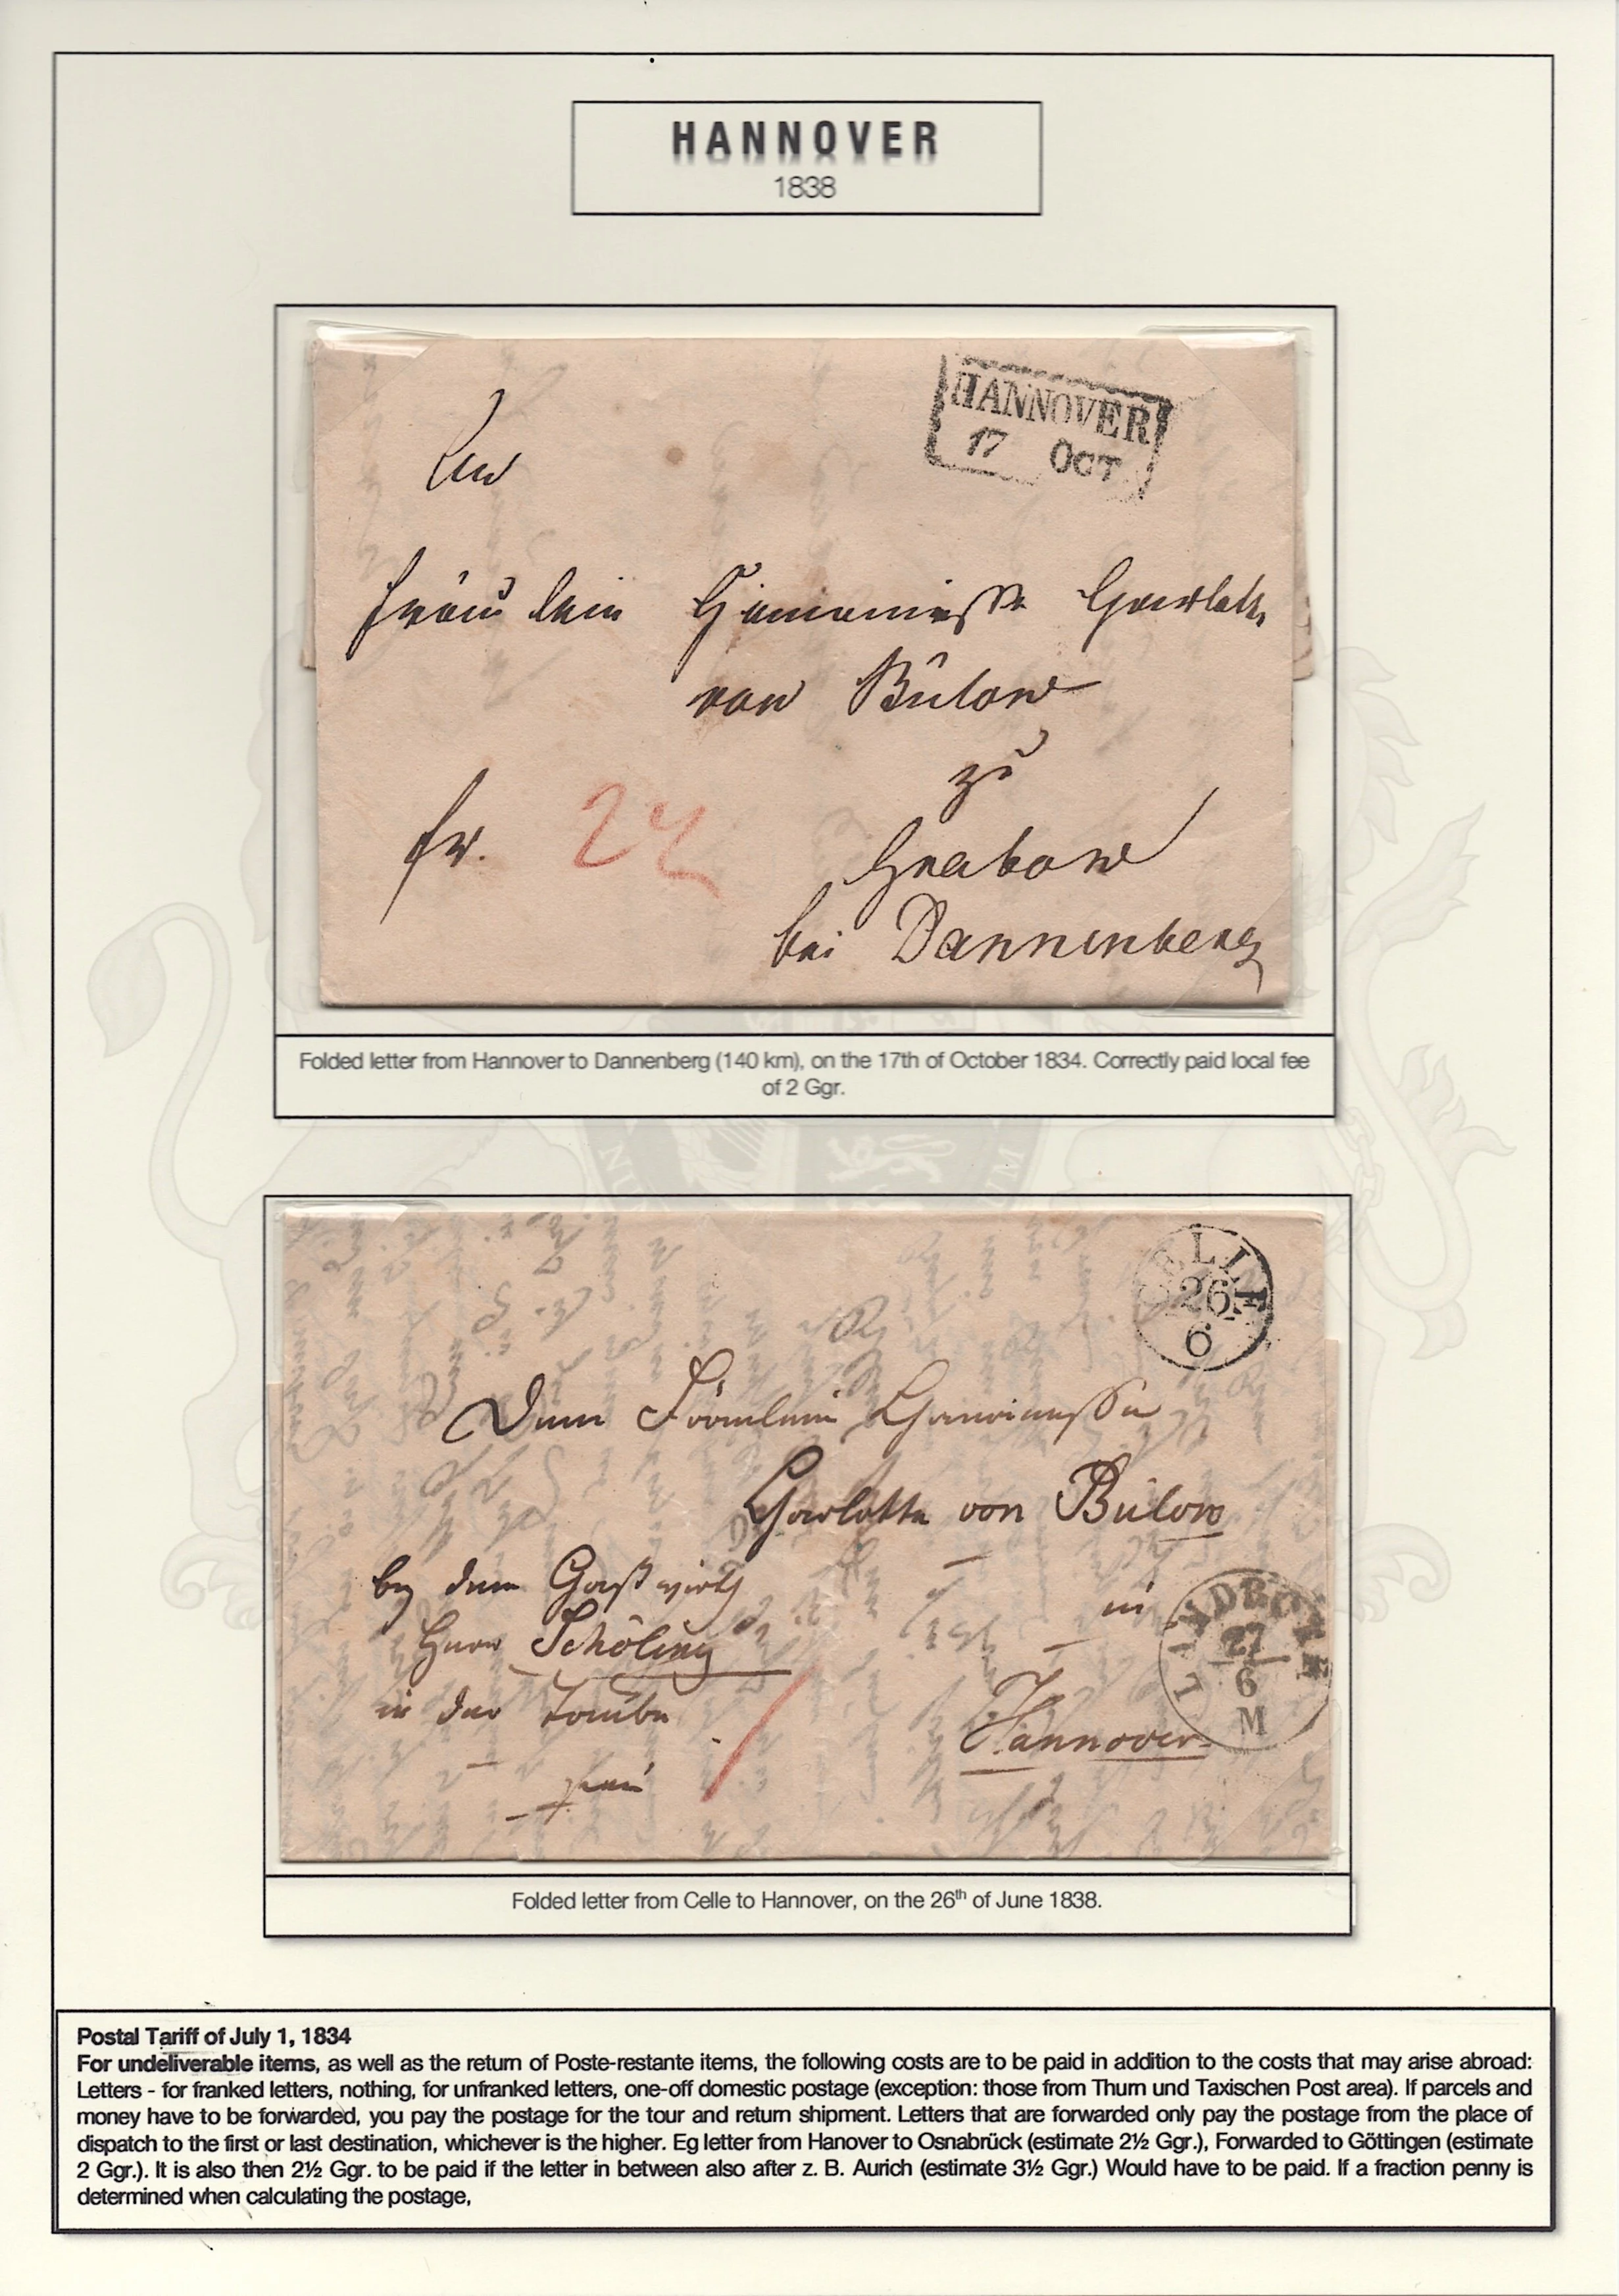 HANNOVER
1838
HANNOVER
17 OCT
An
Fräulein Chanoinesse Charlotte
von Bülow
zu
fr. 2
Grabow
bei Dannenberg
Folded letter from Hannover to Dannenberg (140 km), on the 17th of October 1834. Correctly paid local fee
of 2 Ggr.
CELLE
26
6
Dem Fräulein Chanoinesse
Charlotte von Bülow
by dem Gastwirth
in
Herrn Schöling
in der Taube
Hannover
frei
LANDDROSTEI
27
6
M
Folded letter from Celle to Hannover, on the 26th of June 1838.
Postal Tariff of July 1, 1834
For undeliverable items, as well as the return of Poste-restante items, the following costs are to be paid in addition to the costs that may arise abroad:
Letters - for franked letters, nothing, for unfranked letters, one-off domestic postage (exception: those from Thurn und Taxischen Post area). If parcels and
money have to be forwarded, you pay the postage for the tour and return shipment. Letters that are forwarded only pay the postage from the place of
dispatch to the first or last destination, whichever is the higher. Eg letter from Hanover to Osnabrück (estimate 2½ Ggr.), Forwarded to Göttingen (estimate
2 Ggr.). It is also then 2½ Ggr. to be paid if the letter in between also after z. B. Aurich (estimate 3½ Ggr.) Would have to be paid. If a fraction penny is
determined when calculating the postage,